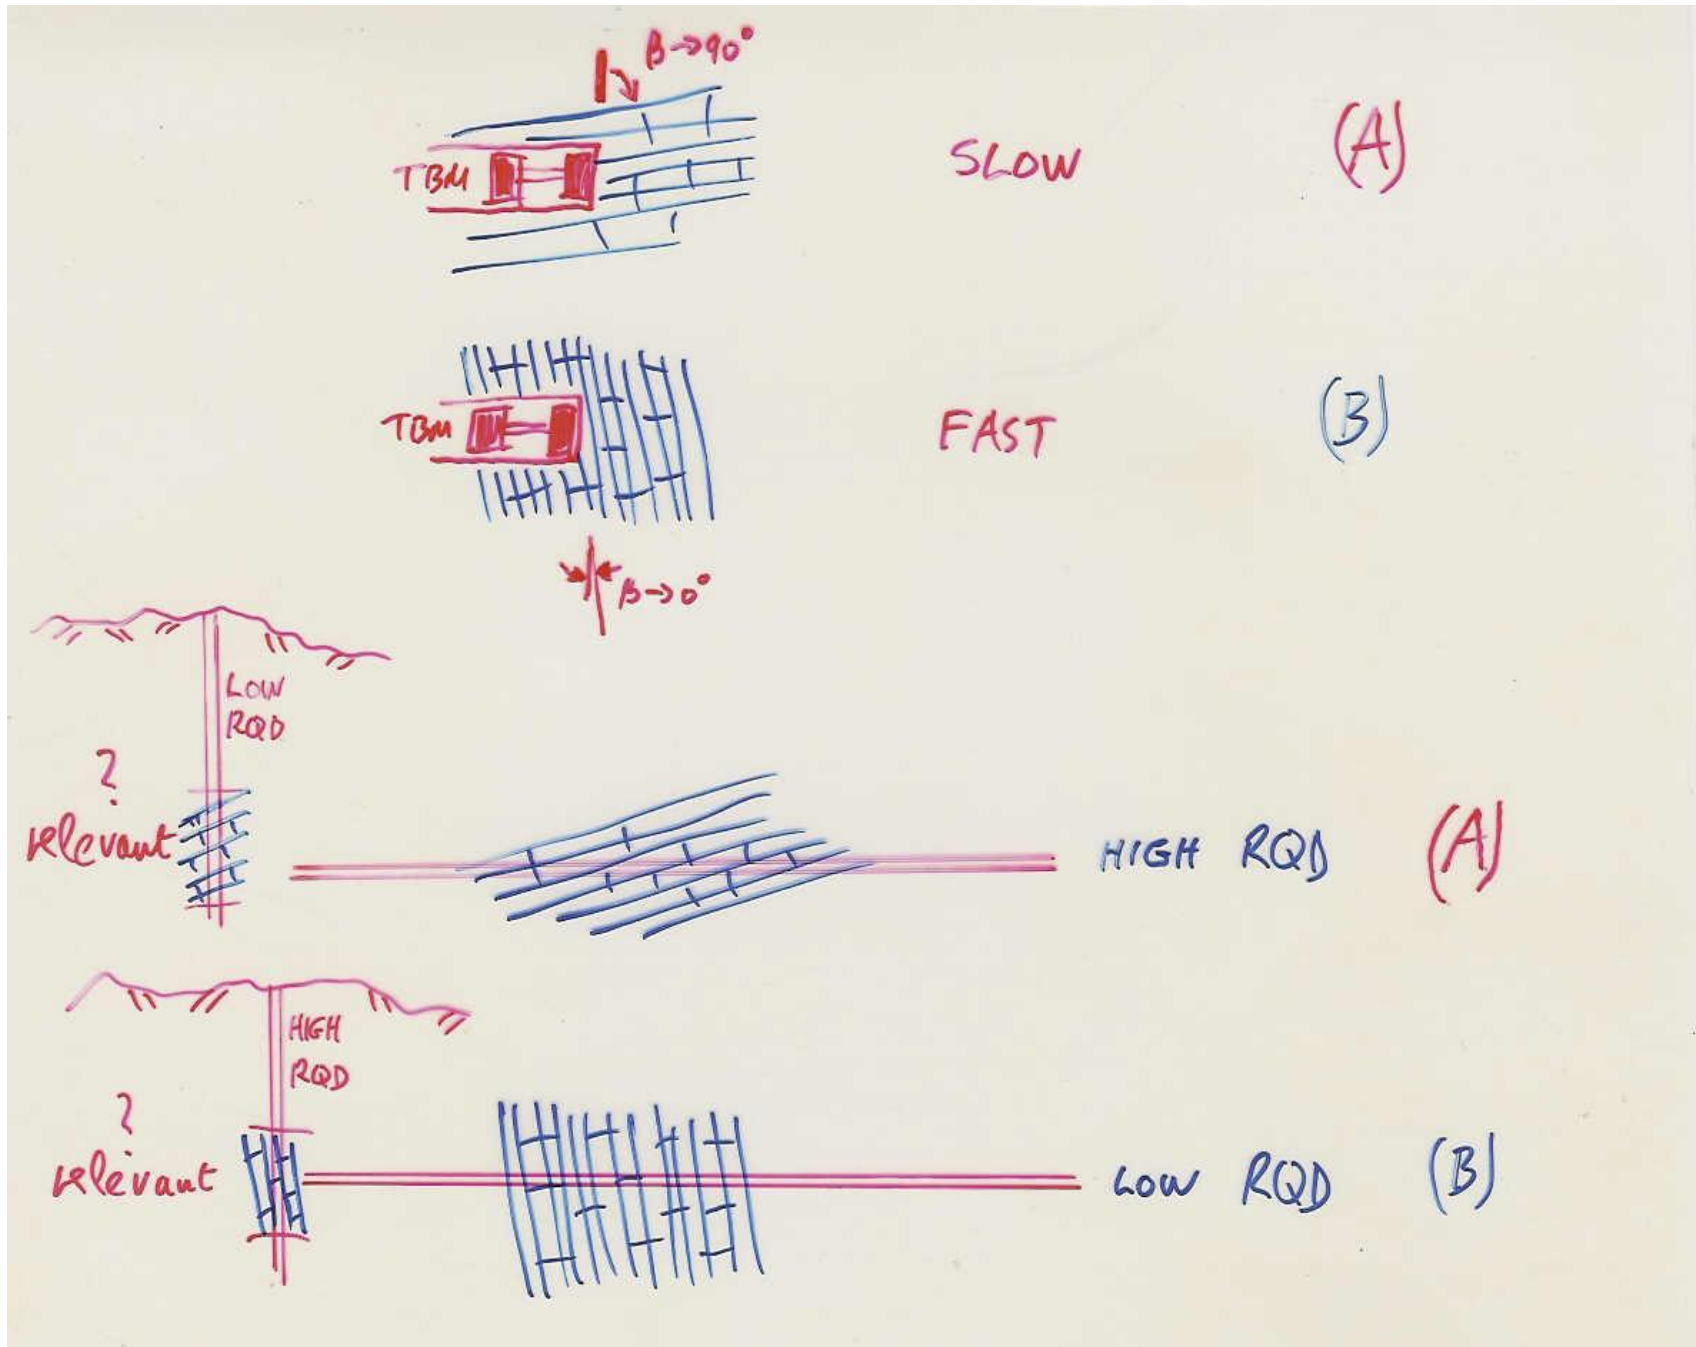 β→90°
TBM SLOW (A)
TBM FAST (B)
β→0°
LOW
RQD
?
relevant HIGH RQD (A)
HIGH
RQD
?
relevant LOW RQD (B)